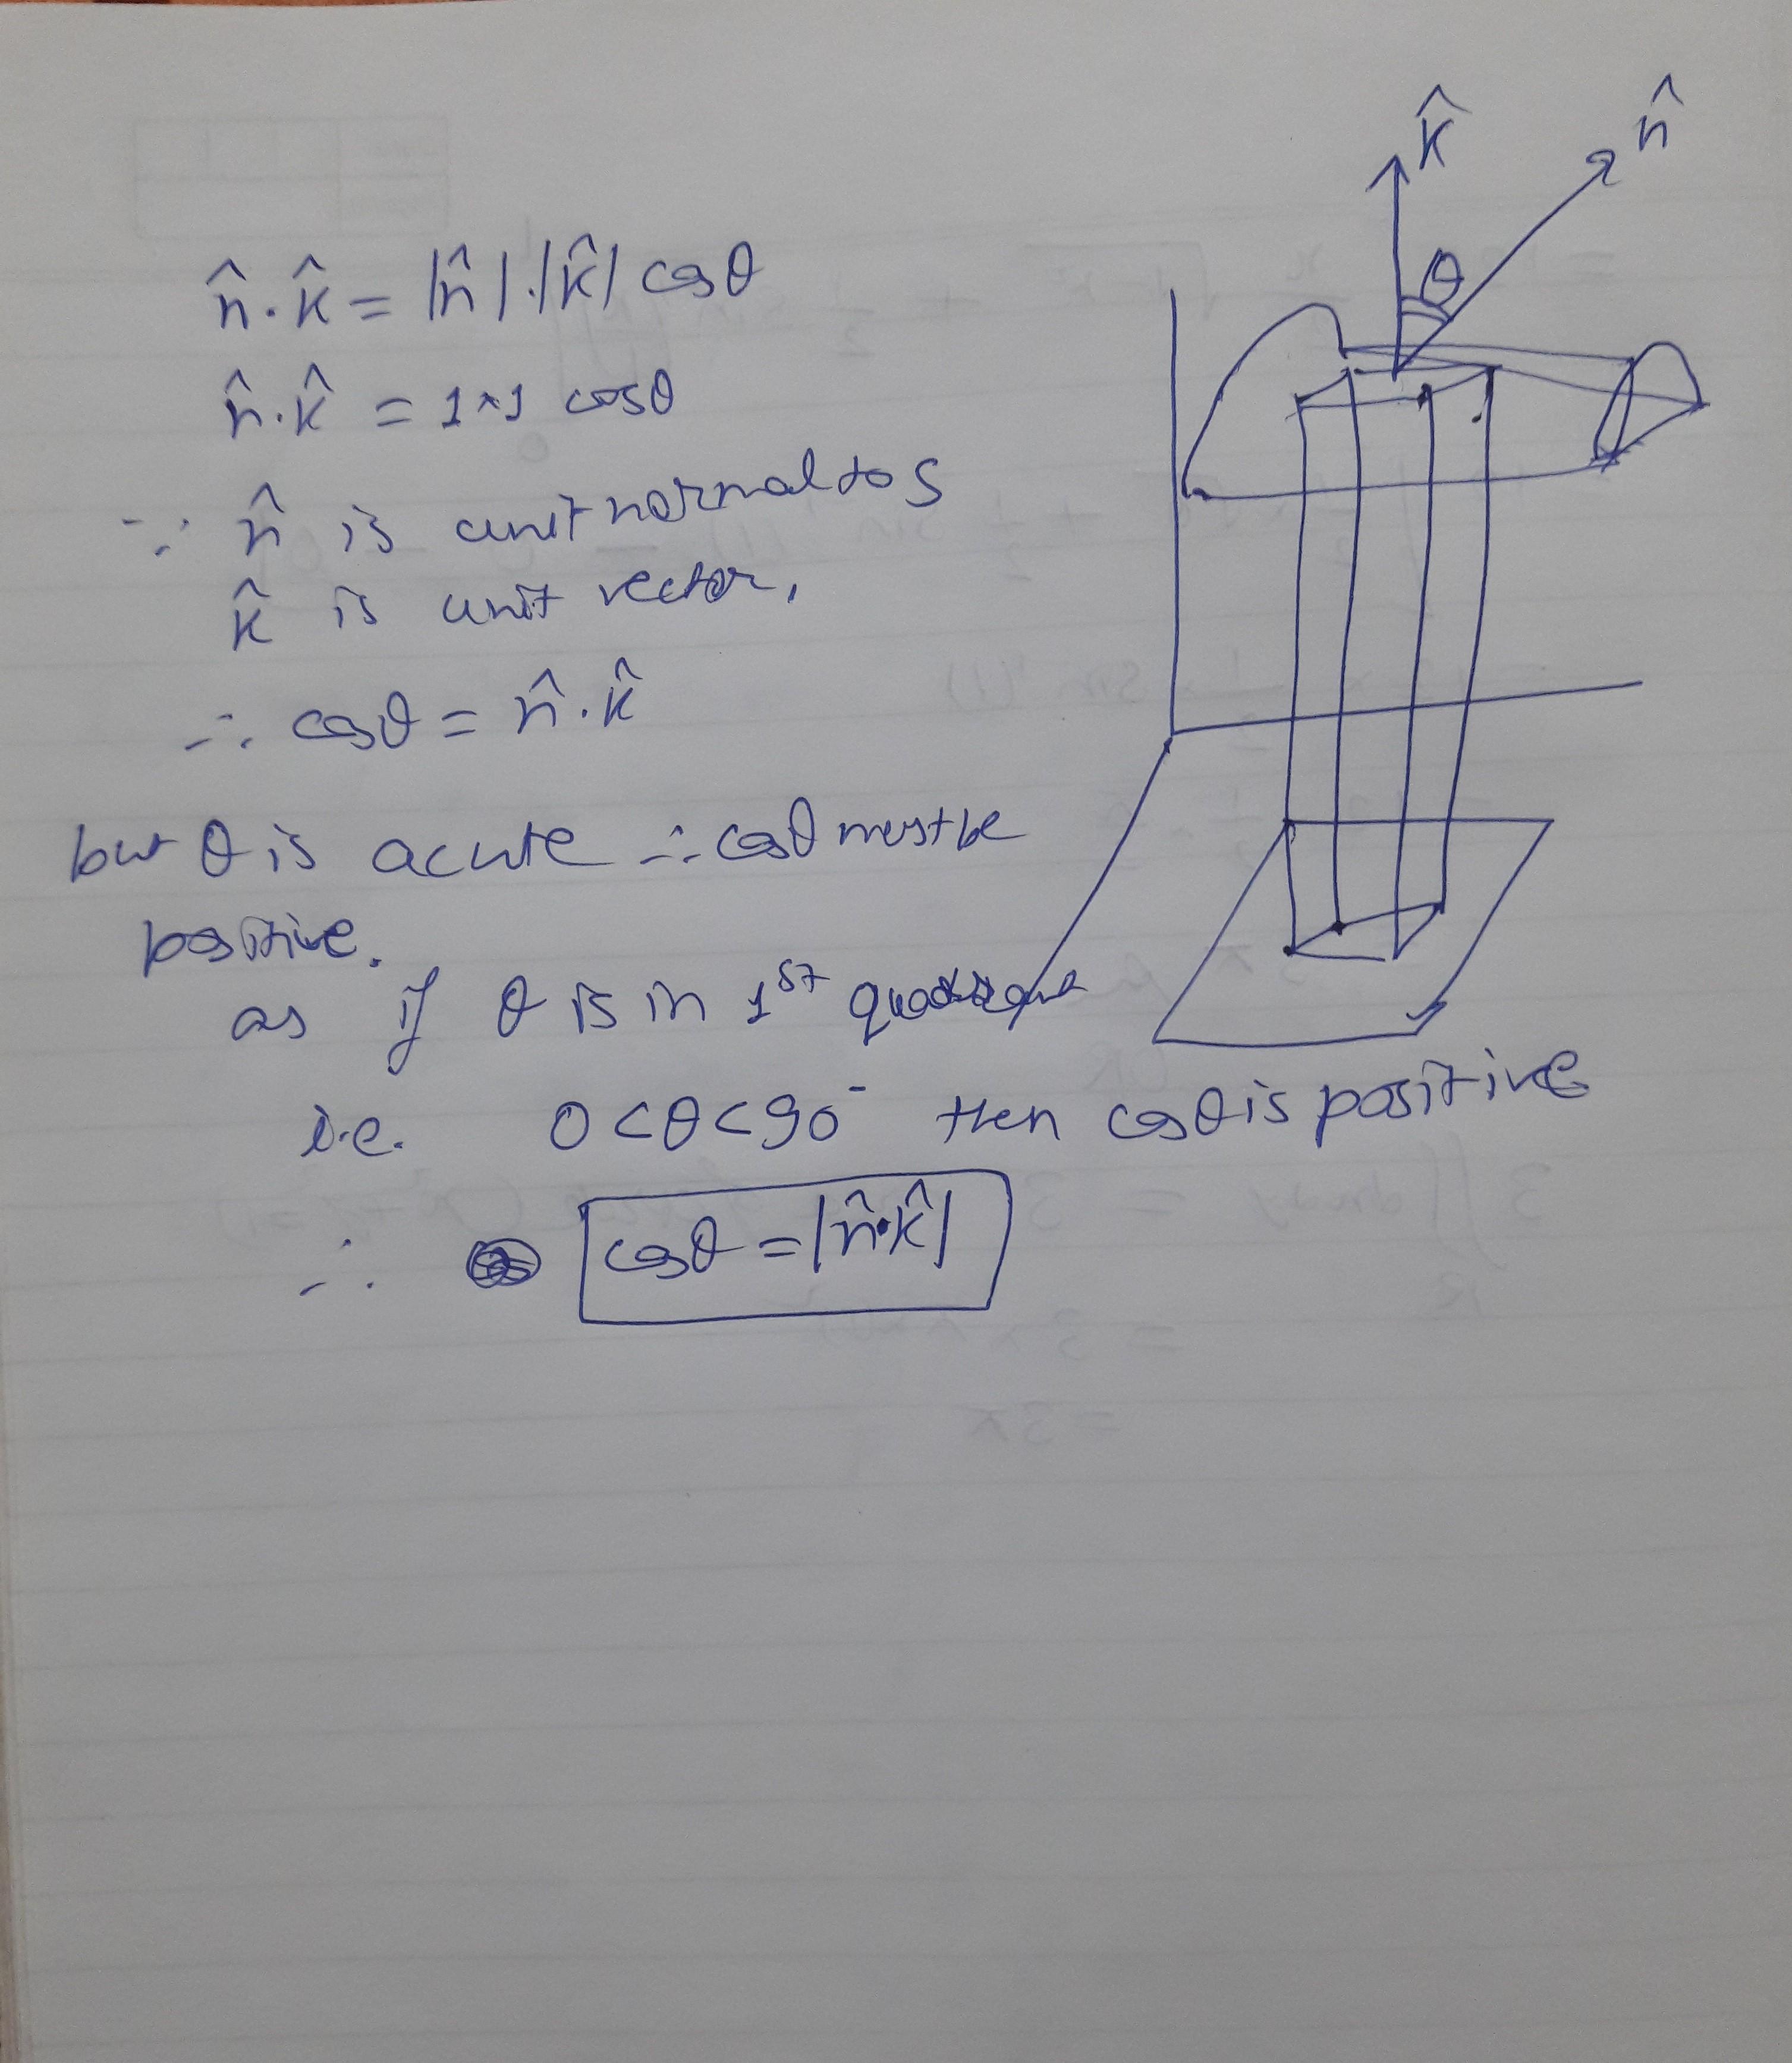 k̂ n̂
θ
n̂.k̂ = |n̂|.|k̂| cosθ
n̂.k̂ = 1×1 cosθ
∵ n̂ is unit normal to S
k̂ is unit vector,
∴ cosθ = n̂.k̂
but θ is acute ∴ cosθ must be
positive.
as if θ is in 1st quadrant
i.e. 0<θ<90 then cosθ is positive
∴ cosθ = |n̂•k̂|